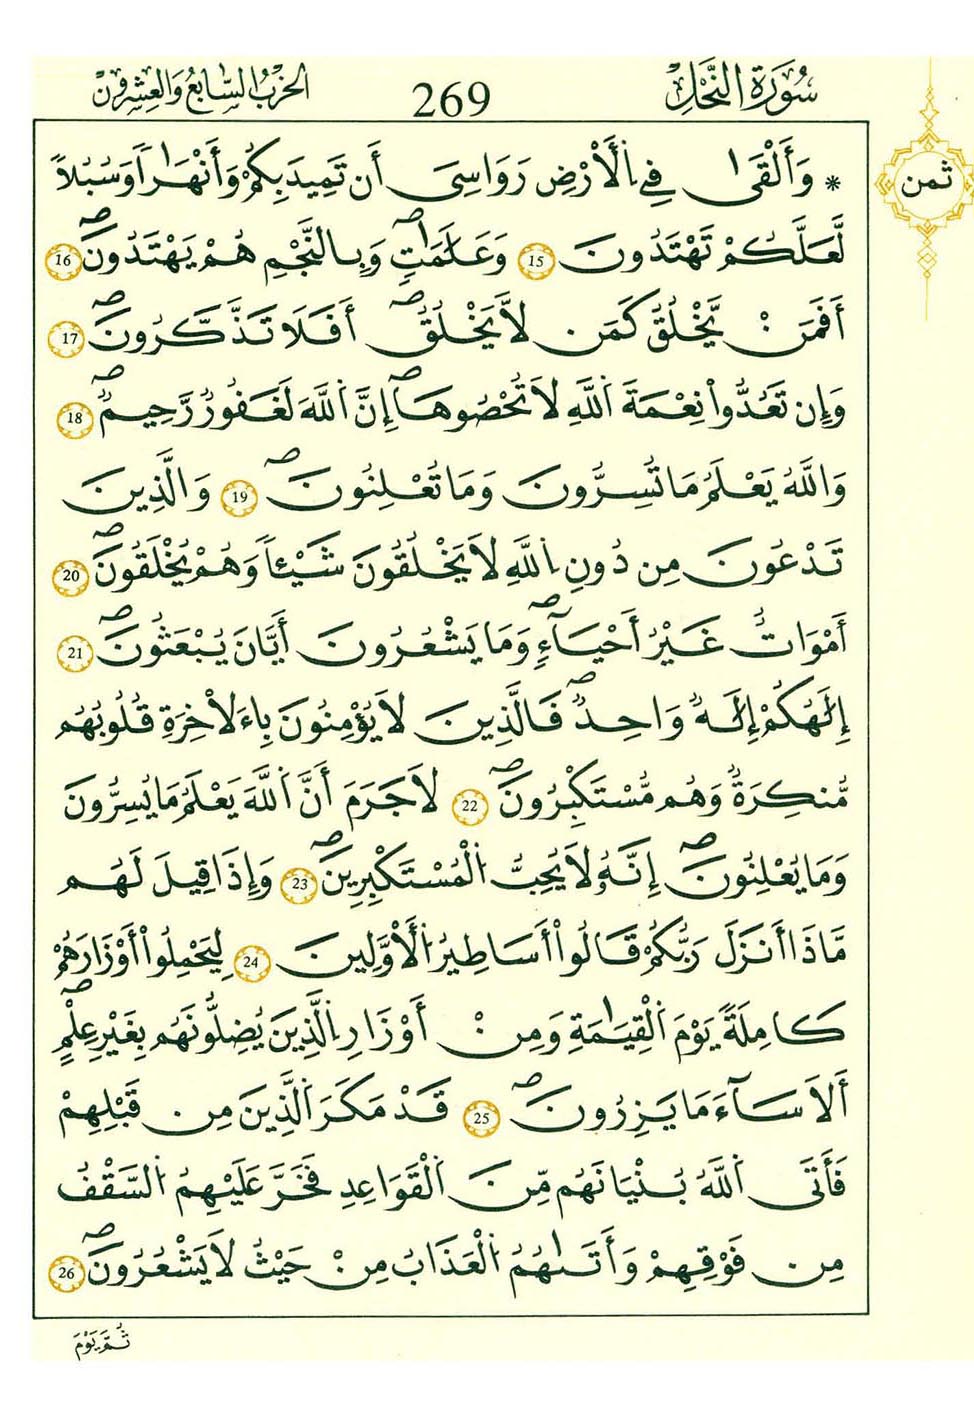 سُورَةُ النَّحْلِ
269
الحِزْبُ السَّابِعُ وَالعِشْرُونَ
ثمن
* وَأَلْقَىٰ فِے اِ۬لَارْضِ رَوَاسِىَ أَن تَمِيدَ بِكُمْ وَأَنْهَٰراٗ وَسُبُلاٗ
لَّعَلَّكُمْ تَهْتَدُونَ 15 وَعَلَٰمَٰتٖۖ وَبِالنَّجْمِ هُمْ يَهْتَدُونَۖ 16
أَفَمَنْ يَّخْلُقُ كَمَن لاَّ يَخْلُقُۖ أَفَلَا تَذَّكَّرُونَۖ 17
وَإِن تَعُدُّواْ نِعْمَةَ اَ۬للَّهِ لَا تُحْصُوهَاۖ إِنَّ اَ۬للَّهَ لَغَفُورٞ رَّحِيمٞۖ 18
وَاللَّهُ يَعْلَمُ مَا تُسِرُّونَ وَمَا تُعْلِنُونَۖ 19 وَالَّذِينَ
تَدْعُونَ مِن دُونِ اِ۬للَّهِ لَا يَخْلُقُونَ شَيْـٔاٗ وَهُمْ يُخْلَقُونَۖ 20
أَمْوَاتٌ غَيْرُ أَحْيَآءٖۖ وَمَا يَشْعُرُونَ أَيَّانَ يُبْعَثُونَۖ 21
إِلَٰهُكُمْ إِلَٰهٞ وَاحِدٞۖ فَالَّذِينَ لَا يُؤْمِنُونَ بِاءَلَاخِرَةِ قُلُوبُهُم
مُّنكِرَةٞ وَهُم مُّسْتَكْبِرُونَۖ 22 لَا جَرَمَ أَنَّ اَ۬للَّهَ يَعْلَمُ مَا يُسِرُّونَ
وَمَا يُعْلِنُونَۖ إِنَّهُۥ لَا يُحِبُّ اُ۬لْمُسْتَكْبِرِينَۖ 23 وَإِذَا قِيلَ لَهُم
مَّاذَا أَنزَلَ رَبُّكُمْ قَالُواْ أَسَاطِيرُ اُ۬لَاوَّلِينَ 24 لِيَحْمِلُواْ أَوْزَارَهُمْ
كَامِلَةٗ يَوْمَ اَ۬لْقِيَٰمَةِ وَمِنْ أَوْزَارِ اِ۬لَّذِينَ يُضِلُّونَهُم بِغَيْرِ عِلْمٍۖ
أَلَا سَآءَ مَا يَزِرُونَۖ 25 قَدْ مَكَرَ اَ۬لَّذِينَ مِن قَبْلِهِمْ
فَأَتَى اَ۬للَّهُ بُنْيَانَهُم مِّنَ اَ۬لْقَوَاعِدِ فَخَرَّ عَلَيْهِمُ اُ۬لسَّقْفُ
مِن فَوْقِهِمْ وَأَتَىٰهُمُ اُ۬لْعَذَابُ مِنْ حَيْثُ لَا يَشْعُرُونَۖ 26
ثُمَّ يَوْمَ